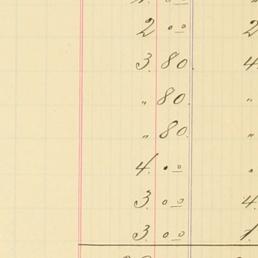 2 00 2
3. 80. 4
" 80. "
" 80.
4. 00
3. 00 4.
3. 00 1.